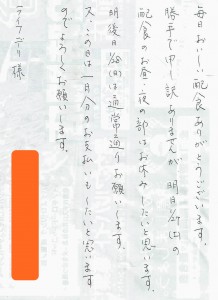 毎日おいしい配食ありがとうございます。
勝手で申し訳ありませんが、明日1/27(土)の
配食のお昼、夜の部はお休みしたいと思います。
明後日1/28(日)は通常通りお願いします。
又、この日は一日分のお支払いもしたいと思います
のでよろしくお願いします。
ライフデリ様